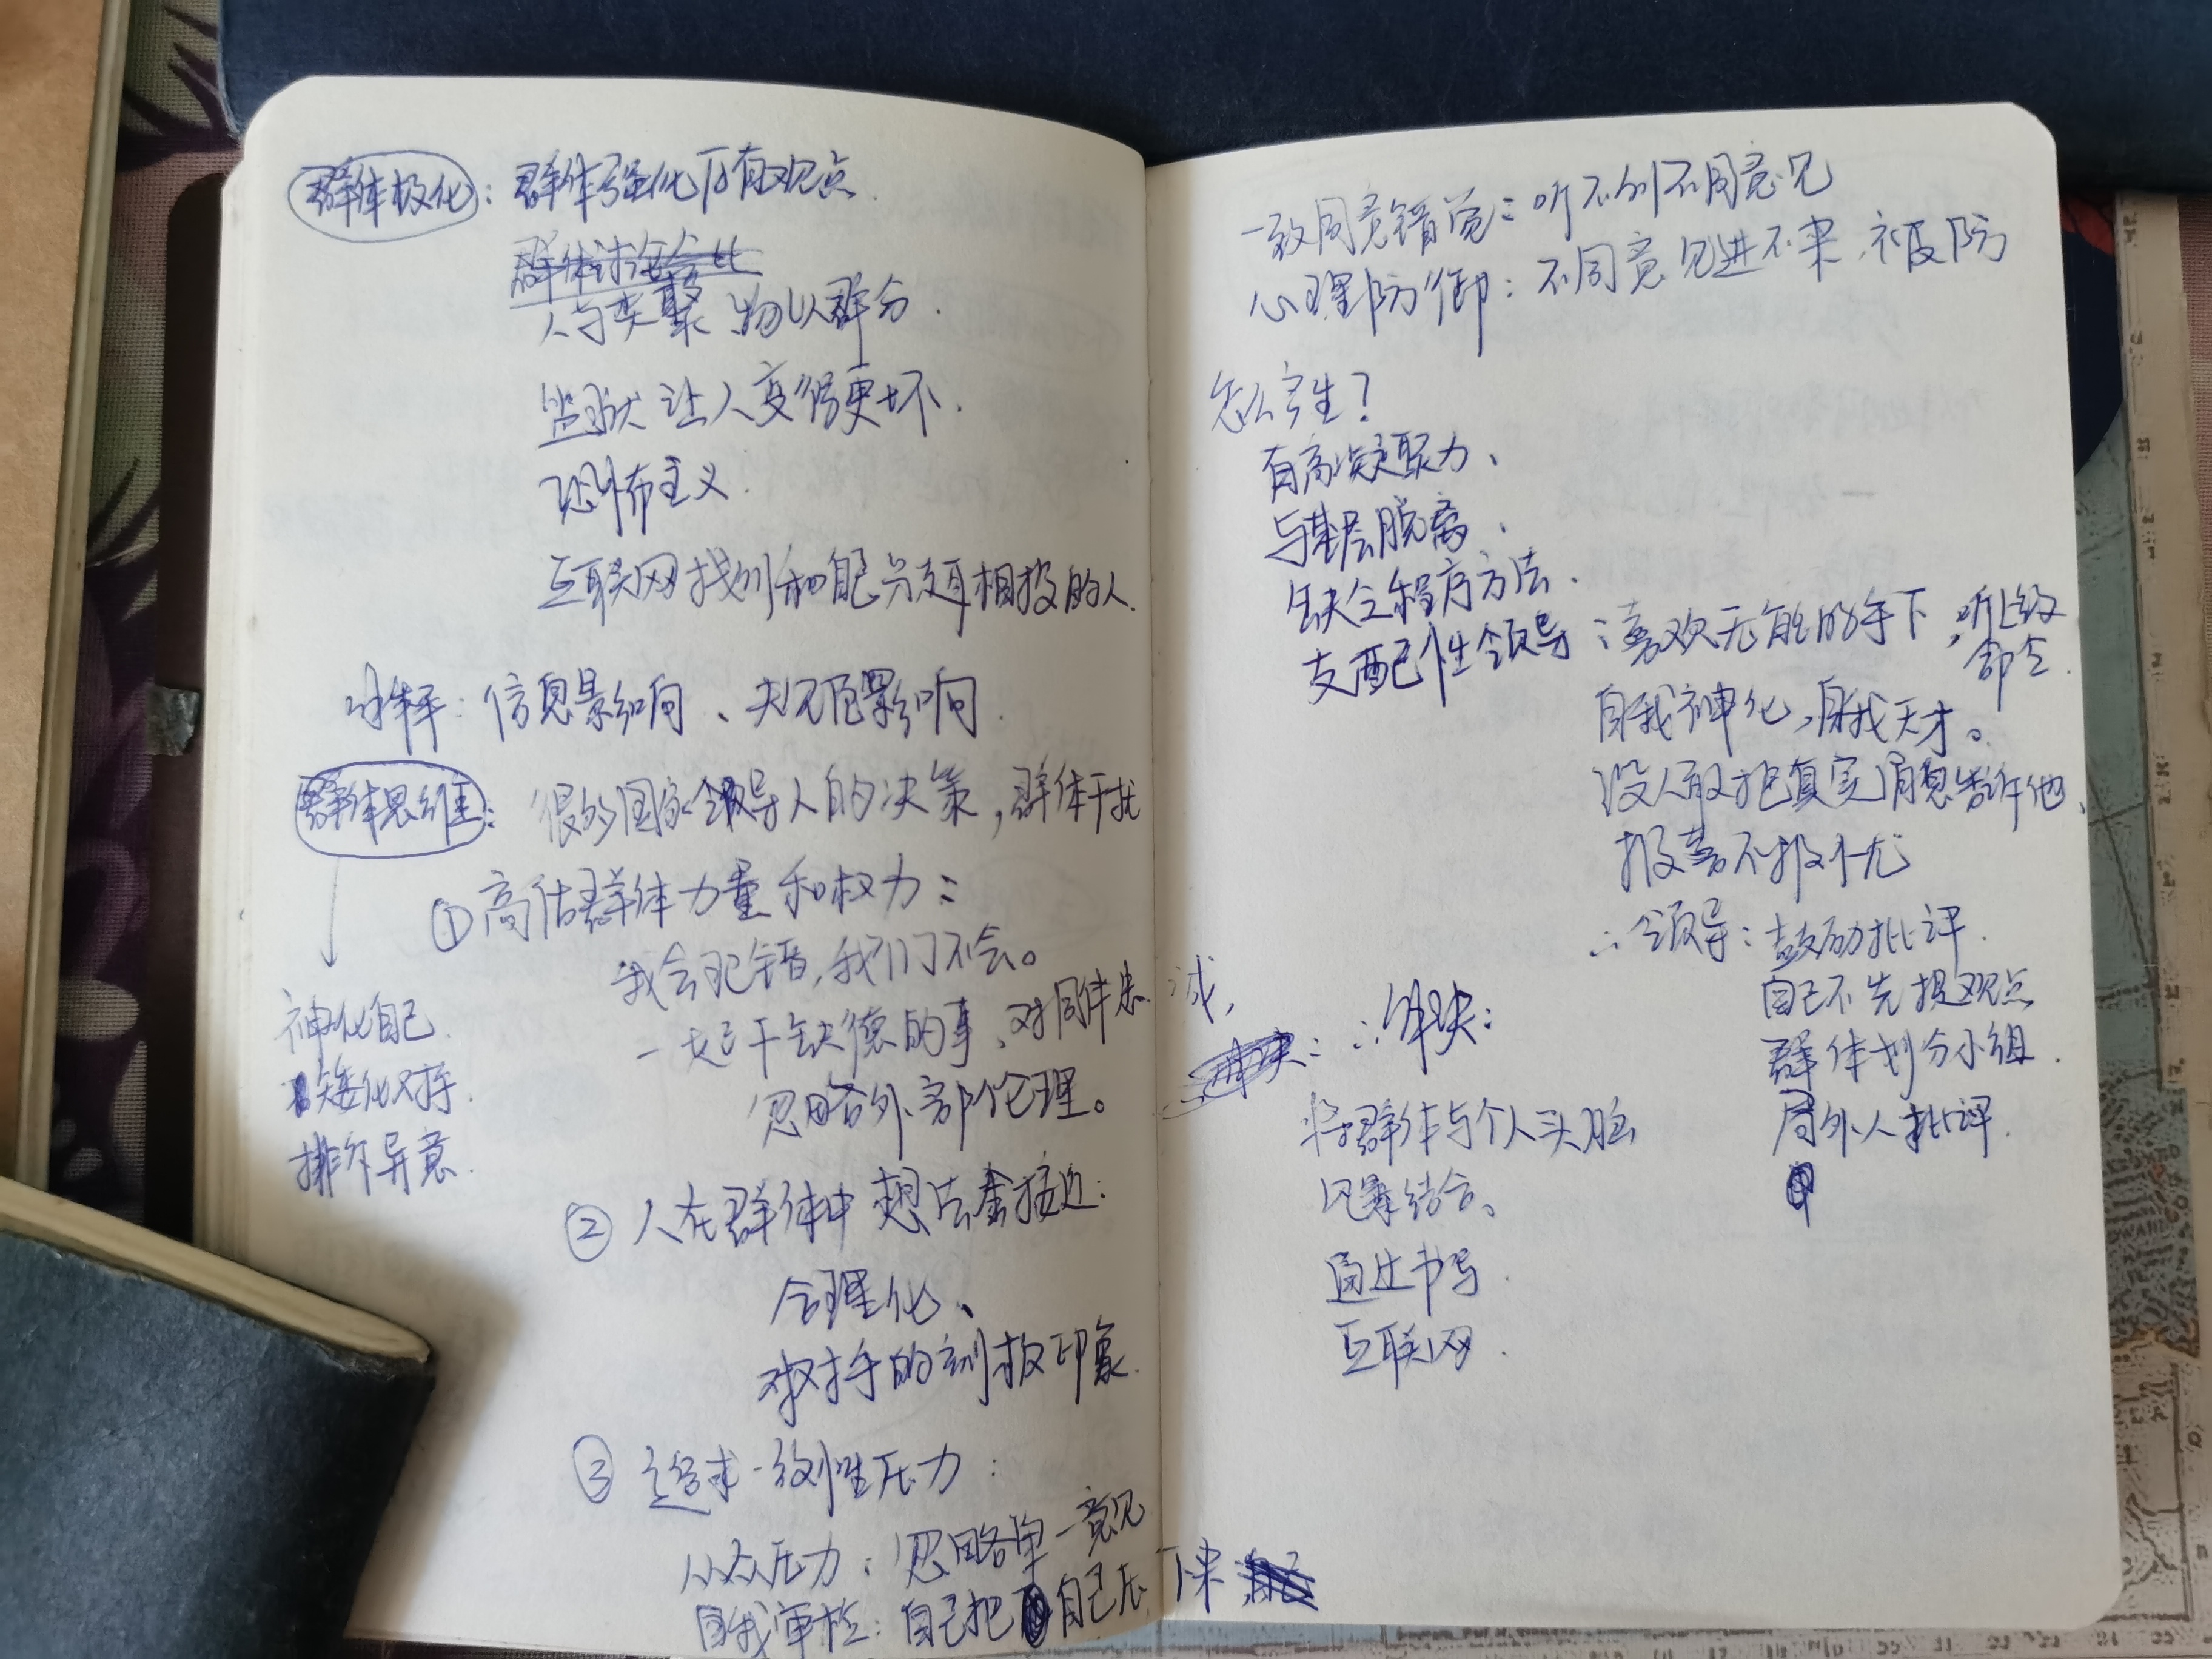 群体极化：群体强化原有观点
群体讨论会比
人与类聚 物以群分.
监狱让人变得更坏.
恐怖主义.
互联网找到和自己兴趣相投的人.
解释：信息影响、规范影响.
群体思维：很多国家领导人的决策，群体干扰
①高估群体力量和权力：
我会犯错，我们不会。
一起干缺德的事、对同伴忠诚，
忽略外部伦理。
神化自己.
矮化对手.
排斥异意.
②人在群体中想法会接近：
合理化、
对对手的刻板印象.
③追求一致性压力：
从众压力：忽略单一意见
自我审檢：自己把自己压下来
一致同意错觉：听不到不同意见
心理防御：不同意见进不来，被防
怎么产生？
有高凝聚力、
与基层脱离、
缺乏程序方法.
支配性领导：喜欢无能的手下，听上级
命令.
自我神化，自我天才。
没人敢把真实消息告诉他、
报喜不报忧
∴领导：鼓励批评.
自己不先提观点
群体划分小组.
局外人批评.
∴解决：
将群体与个人头脑
风暴结合、
通过书写.
互联网.